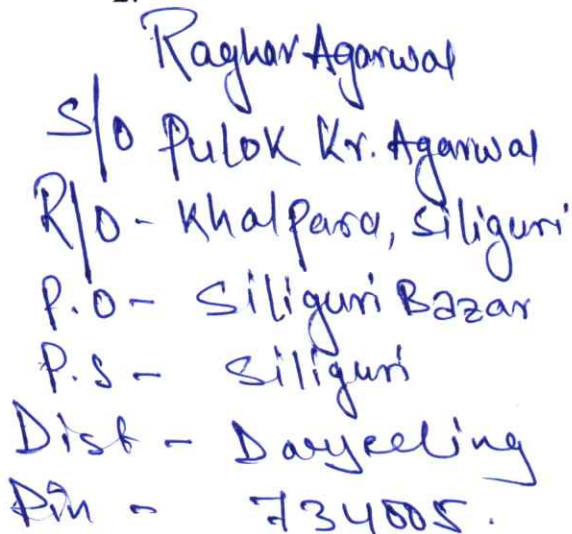 Raghav Agarwal
S/O Pulok Kr. Agarwal
R/O - Khalpara, Siliguri
P.O - Siliguri Bazar
P.S - Siliguri
Dist - Darjeeling
Pin - 734005.